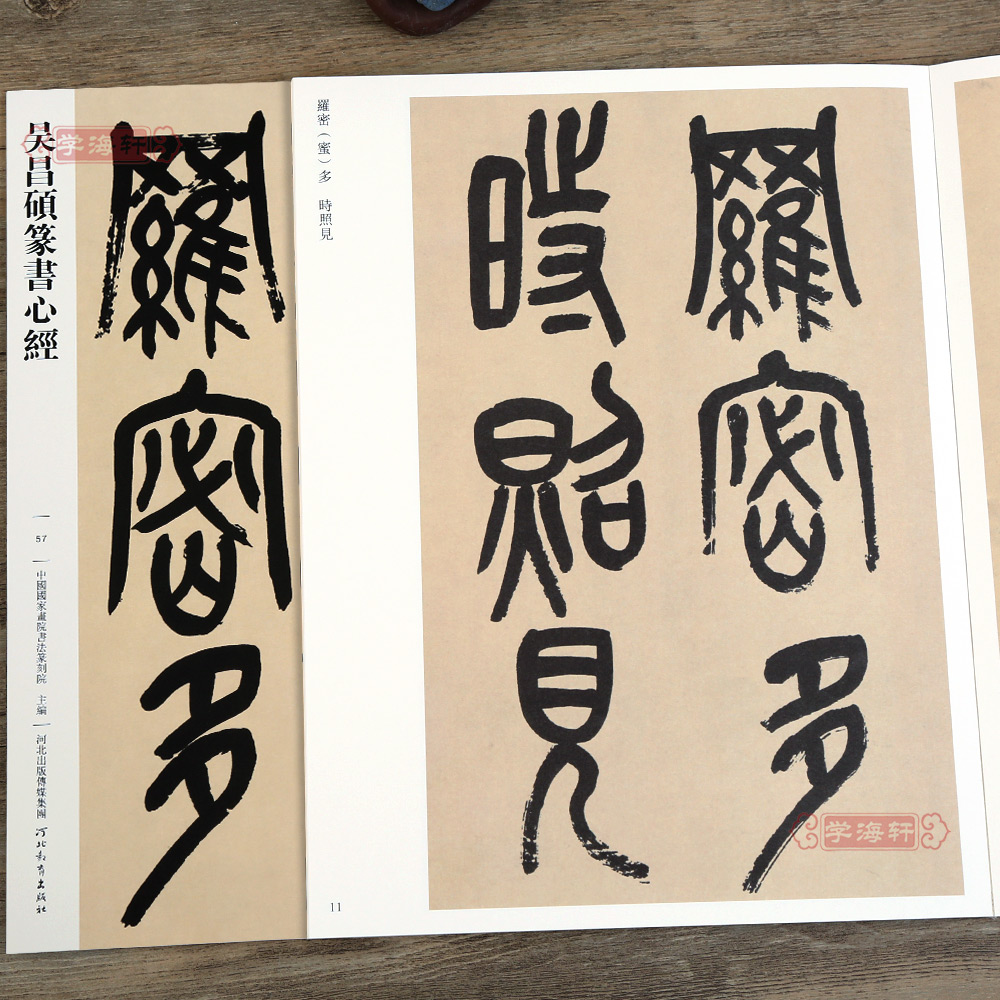 吳昌碩篆書心經
57
中國國家畫院書法篆刻院 主編
河北出版傳媒集團
河北教育出版社
羅密多
羅密（蜜）多 時照見
羅密多
時照見
11
学海轩
学海轩